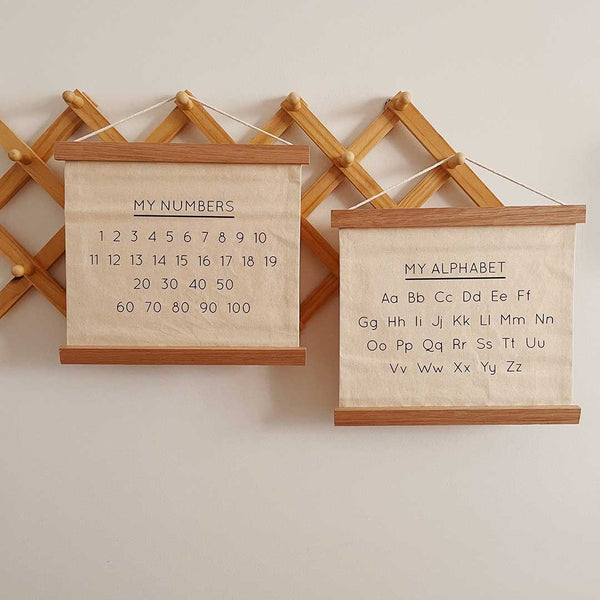 MY NUMBERS
1 2 3 4 5 6 7 8 9 10
11 12 13 14 15 16 17 18 19
20 30 40 50
60 70 80 90 100
MY ALPHABET
Aa Bb Cc Dd Ee Ff
Gg Hh Ii Jj Kk Ll Mm Nn
Oo Pp Qq Rr Ss Tt Uu
Vv Ww Xx Yy Zz